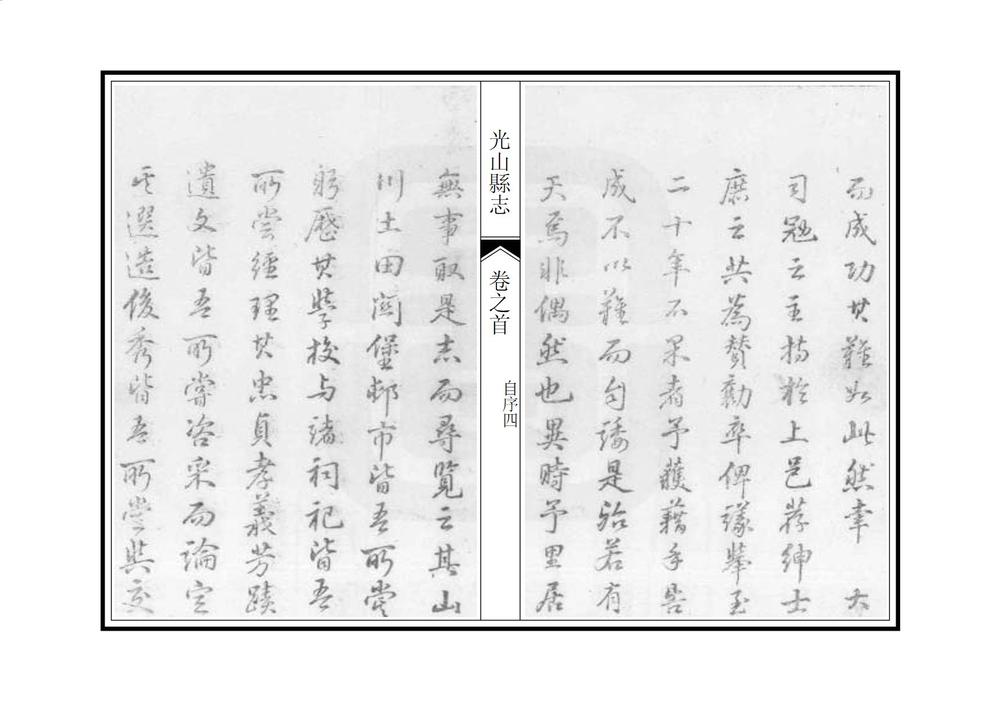 而成功其難如此然幸 大
司冠云主持於上邑薦紳士
庶云共為贊勸卒俾議舉至
二十年不果者予獲藉手告
成不以難而自諉是殆若有
天焉非偶然也異時予里居
光山縣志 卷之首 自序四
無事取是志而尋覽云其山
川土田關堡邨市皆吾所嘗
躬歷其學校与諸祠祀皆吾
所嘗經理其忠貞孝義芳蹟
遺文皆吾所嘗咨采而論定
其選造俊秀皆吾所嘗與交